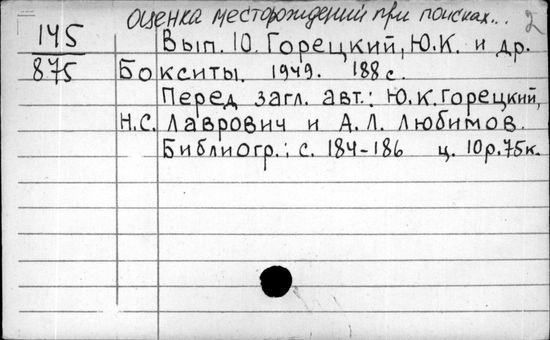 оценка месторождений при поисках... 2
145 Вып. 10. Горецкий, Ю.К. и др.
875 Бокситы. 1949. 188 с.
Перед загл. авт.: Ю.К. Горецкий,
Н.С. Лаврович и А.Л. Любимов.
Библиогр.: с. 184-186 ц. 10р.75к.